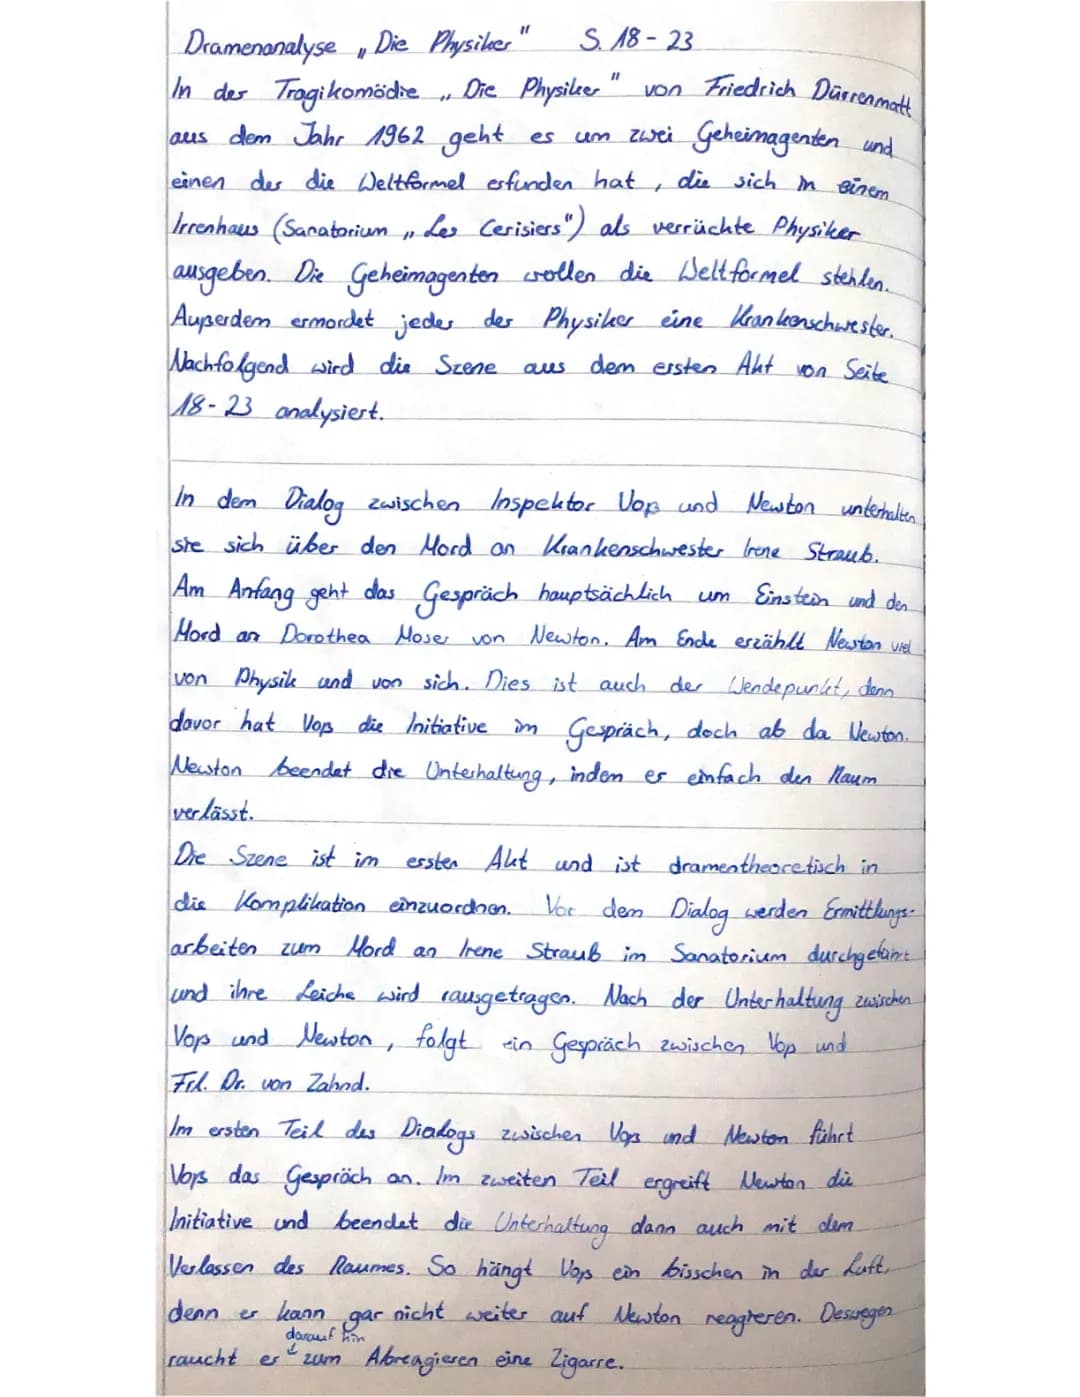 Dramenanalyse „Die Physiker" S. 18-23
In der Tragikomödie „Die Physiker" von Friedrich Dürrenmatt
aus dem Jahr 1962 geht es um zwei Geheimagenten und
einen der die Weltformel erfunden hat, die sich in einem
Irrenhaus (Sanatorium „Les Cerisiers") als verrückte Physiker
ausgeben. Die Geheimagenten wollen die Weltformel stehlen.
Außerdem ermordet jeder der Physiker eine Krankenschwester.
Nachfolgend wird die Szene aus dem ersten Akt von Seite
18-23 analysiert.
In dem Dialog zwischen Inspektor Voß und Newton unterhalten
sie sich über den Mord an Krankenschwester Irene Straub.
Am Anfang geht das Gespräch hauptsächlich um Einstein und den
Mord an Dorothea Moser von Newton. Am Ende erzählt Newton viel
von Physik und von sich. Dies ist auch der Wendepunkt, denn
davor hat Voß die Initiative im Gespräch, doch ab da Newton.
Newton beendet die Unterhaltung, indem er einfach den Raum
verlässt.
Die Szene ist im ersten Akt und ist dramentheoretisch in
die Komplikation einzuordnen. Vor dem Dialog werden Ermittlungs-
arbeiten zum Mord an Irene Straub im Sanatorium durchgeführt
und ihre Leiche wird rausgetragen. Nach der Unterhaltung zwischen
Voß und Newton, folgt ein Gespräch zwischen Voß und
Frl. Dr. von Zahnd.
Im ersten Teil des Dialogs zwischen Voß und Newton führt
Voß das Gespräch an. Im zweiten Teil ergreift Newton die
Initiative und beendet die Unterhaltung dann auch mit dem
Verlassen des Raumes. So hängt Voß ein bisschen in der Luft,
denn er kann gar nicht weiter auf Newton reagieren. Deswegen
darauf hin
raucht er zum Abreagieren eine Zigarre.